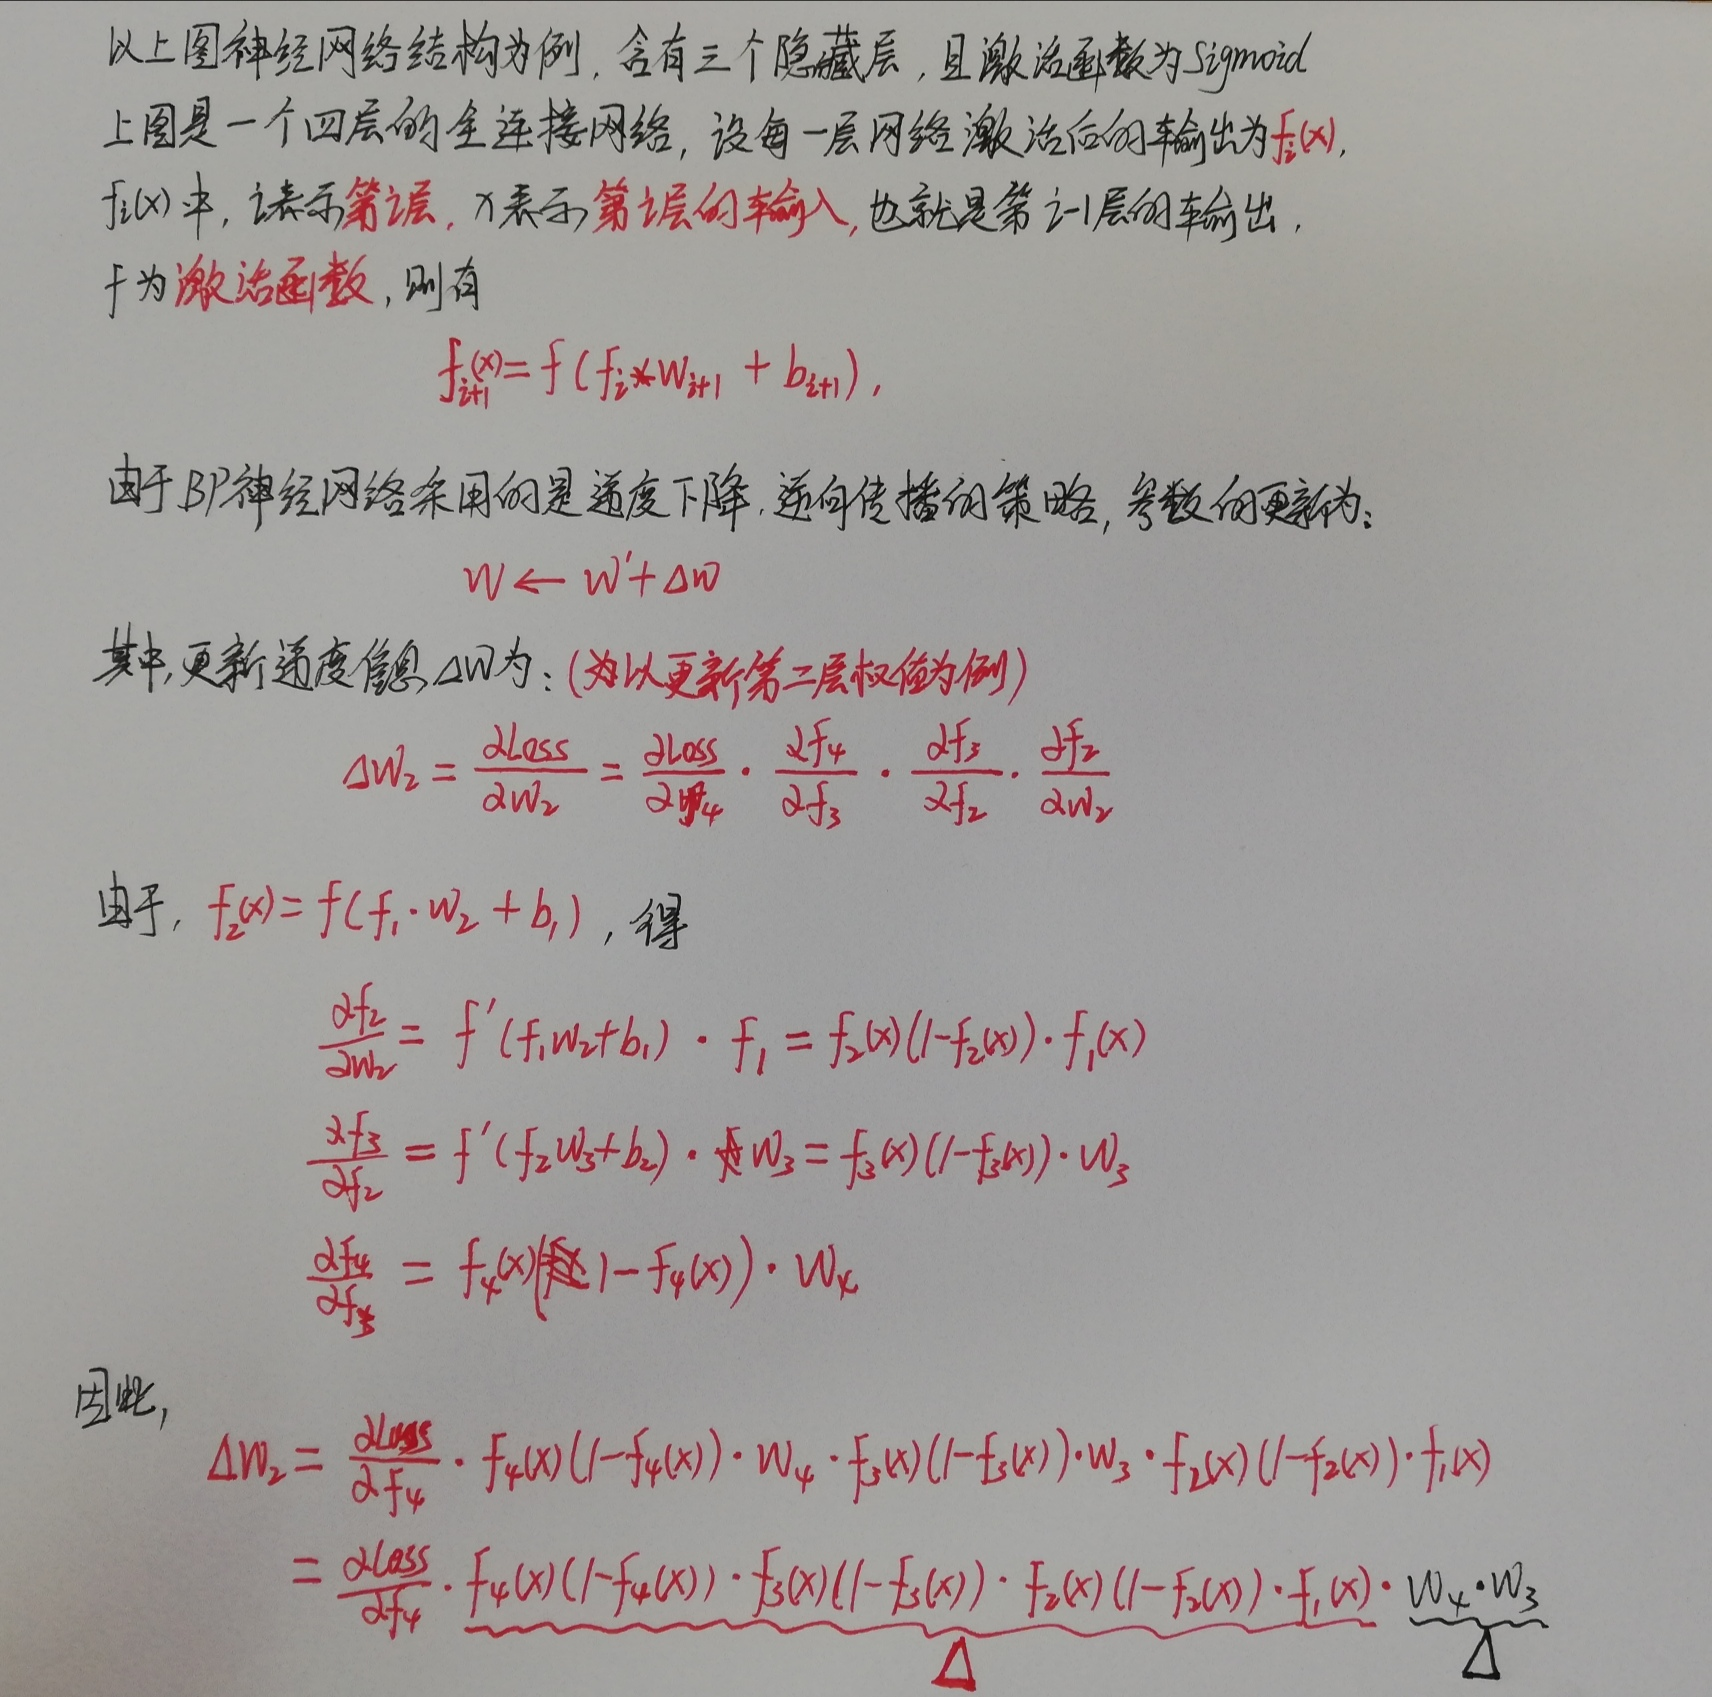 以上图神经网络结构为例,含有三个隐藏层,且激活函数为Sigmoid
上图是一个四层的全连接网络,设每一层网络激活后的输出为fᵢ(x),
fᵢ(x)中,i表示第i层,x表示第i层的输入,也就是第i-1层的输出,
f为激活函数,则有
fᵢ₊₁(x) = f(fᵢ*Wᵢ₊₁ + bᵢ₊₁),
由于BP神经网络采用的是递度下降,逆向传播的策略,参数的更新为:
W ← W' + ΔW
其中,更新递度信息ΔW为:(为以更新第二层权值为例)
ΔW₂ = ∂Loss/∂W₂ = ∂Loss/∂f₄ · ∂f₄/∂f₃ · ∂f₃/∂f₂ · ∂f₂/∂W₂
由于, f₂(x) = f(f₁·W₂ + b₁), 得
∂f₂/∂W₂ = f'(f₁W₂+b₁) · f₁ = f₂(x)(1-f₂(x))·f₁(x)
∂f₃/∂f₂ = f'(f₂W₃+b₂) · W₃ = f₃(x)(1-f₃(x))·W₃
∂f₄/∂f₃ = f₄(x)(1-f₄(x))·W₄
因此,
ΔW₂ = ∂Loss/∂f₄ · f₄(x)(1-f₄(x))·W₄·f₃(x)(1-f₃(x))·W₃·f₂(x)(1-f₂(x))·f₁(x)
= ∂Loss/∂f₄ · f₄(x)(1-f₄(x))·f₃(x)(1-f₃(x))·f₂(x)(1-f₂(x))·f₁(x)·W₄·W₃
Δ Δ